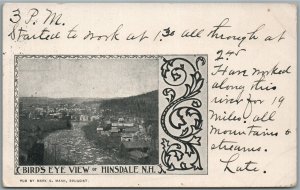 3 P.M.
Started to work at 1.30 all through at
2.45
Have worked
along this
river for 19
miles, all
mountains &
streams.
Late.
BIRDS EYE VIEW OF HINSDALE N.H.
PUB BY MARK D. MANN, BELMONT.